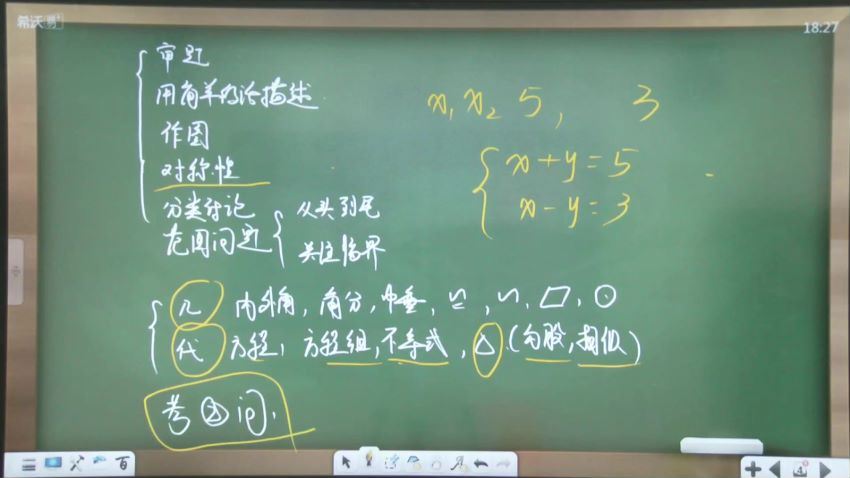 希沃易+
18:27
审题
用自己的话描述
作图
对称性
分类讨论
范围问题 { 从头到尾
关注临界
几 内外角, 角分, 中垂, ≌, ∽, ▱, ○
代 方程, 方程组, 不等式, △ (勾股, 相似)
考②问.
x₁ x₂ 5, 3
x+y=5
x-y=3
百
4